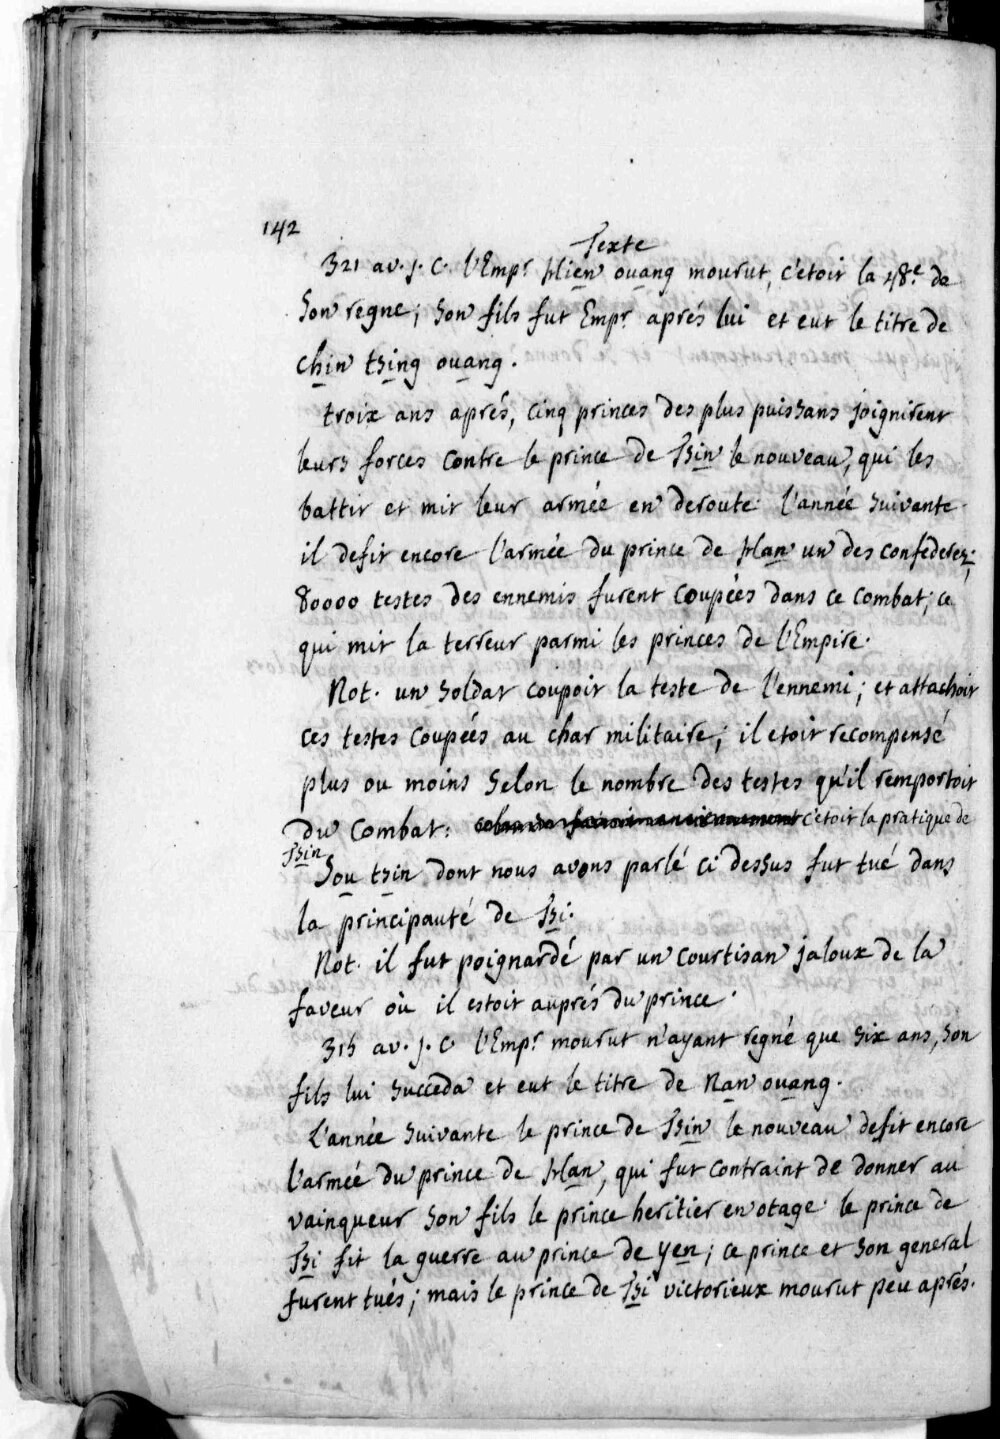 142
Texte
321 av. J. C. l'Emp.r Hien ouang mourut, c'étoit la 48.e de
Son regne; Son fils fut Emp.r aprés lui et eut le titre de
Chin tsing ouang.
troix ans aprés, Cinq princes des plus puissans joignirent
leurs forces Contre le prince de Tsin le nouveau, qui les
battit et mit leur armée en deroute. l'année suivante
il defit encore l'armée du prince de Han un des Confederez;
80000 testes des ennemis furent Coupées dans ce Combat; ce
qui mit la terreur parmi les princes de l'Empire.
Not. un soldat coupoit la teste de l'ennemi; et attachoit
ces testes Coupées au char militaire; il etoit recompensé
plus ou moins selon le nombre des testes qu'il remportoit
du Combat: c'étoit la pratique de
Tsin
Sou tsin dont nous avons parlé ci dessus fut tué dans
la principauté de Tsi.
Not. il fut poignardé par un Courtisan jaloux de la
faveur où il estoit auprés du prince.
315 av. J. C. l'Emp.r mourut n'ayant regné que six ans, son
fils lui succeda et eut le titre de Nan ouang.
L'année suivante le prince de Tsin le nouveau defit encore
l'armée du prince de Han, qui fut Contraint de donner au
vainqueur son fils le prince heritier en otage. le prince de
Tsi fit la guerre au prince de yen; ce prince et son general
furent tués; mais le prince de Tsi victorieux mourut peu aprés.